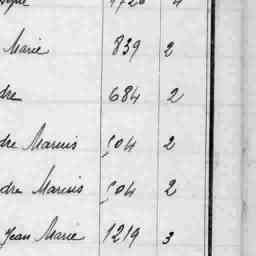 Marie 839 2
dre 684 2
dre Marius 504 2
dre Marius 504 2
Jean Marie 1219 3